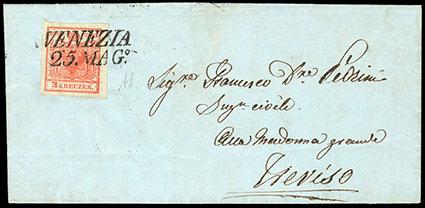 VENEZIA
25. MAGº
3 KREUZER.
Sigre Francesco Dre Pedrini
Ingre civile
Alla Madonna grande
Treviso